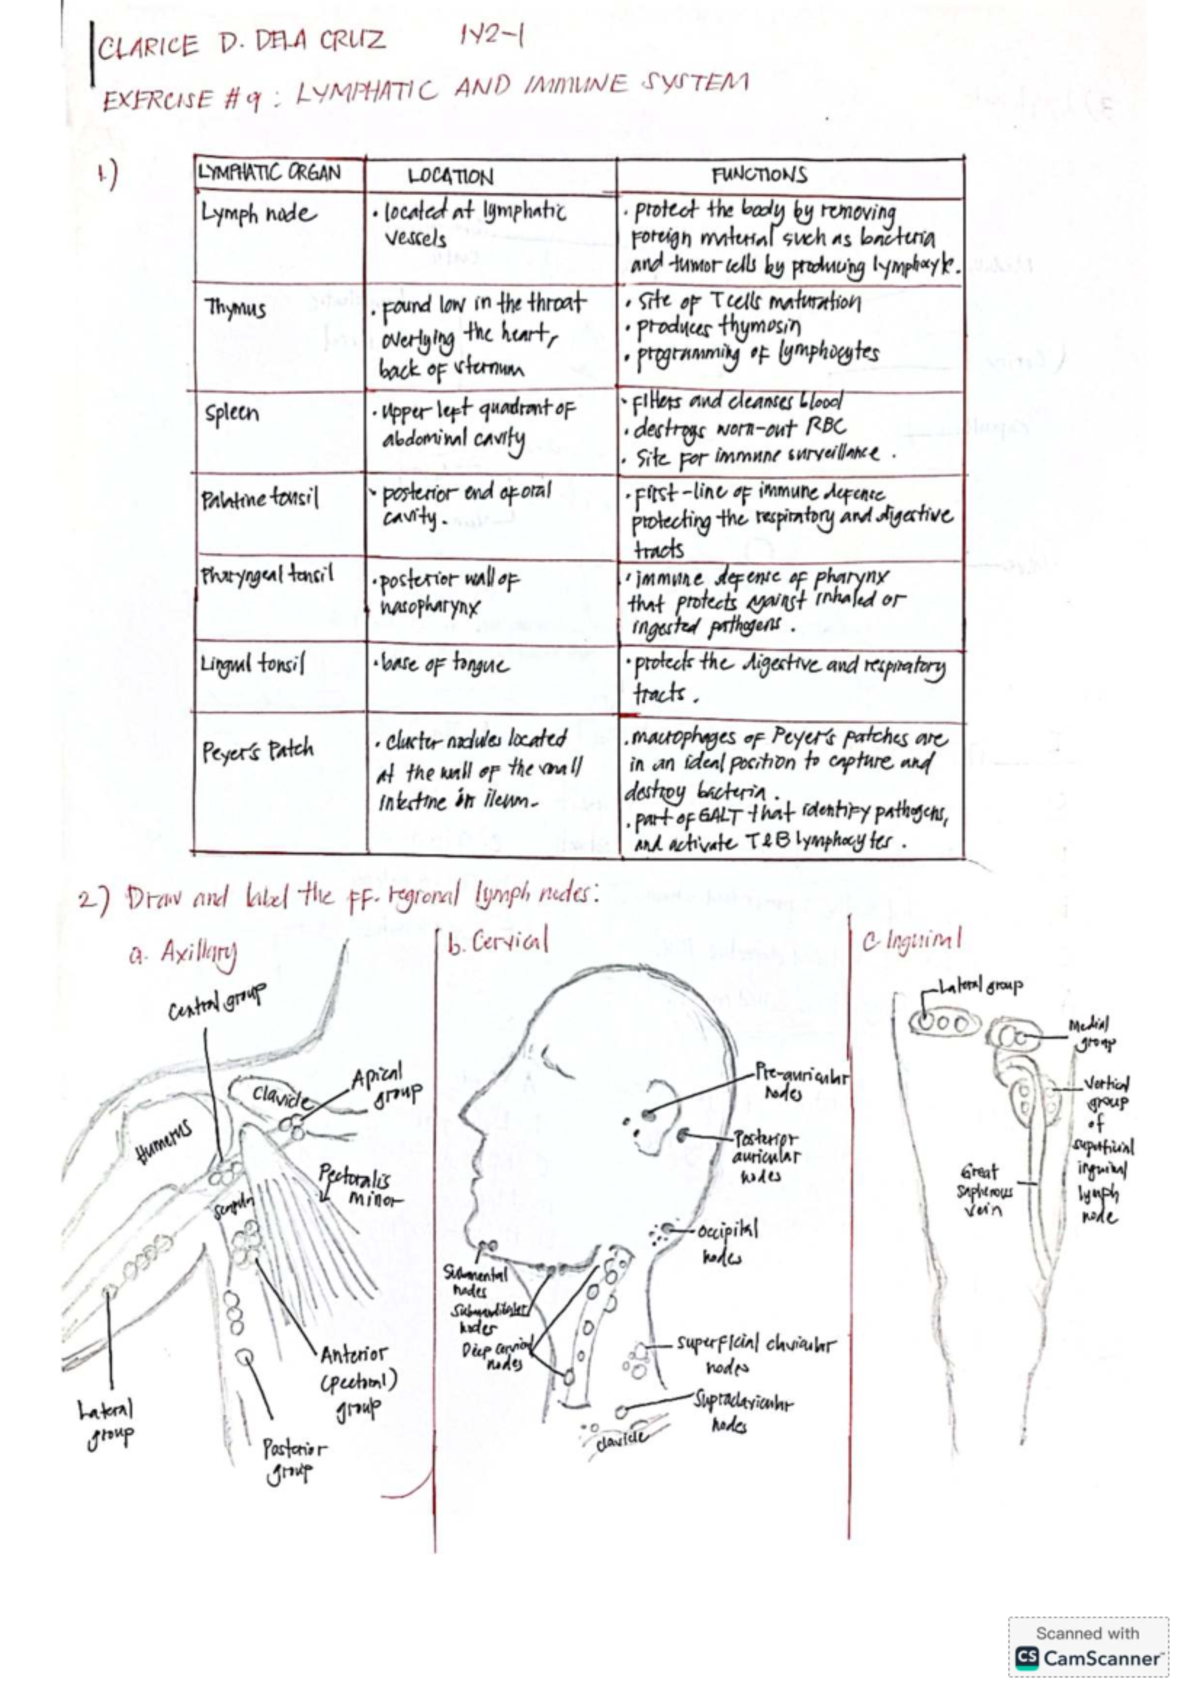 CLARICE D. DELA CRUZ 1Y2-1
EXERCISE #9: LYMPHATIC AND IMMUNE SYSTEM
1.)
LYMPHATIC ORGAN
LOCATION
FUNCTIONS
Lymph node
• located at lymphatic
vessels
• protect the body by removing
foreign material such as bacteria
and tumor cells by producing lymphocyte.
Thymus
• found low in the throat
overlying the heart,
back of sternum
• Site of T cells maturation
• produces thymosin
• programming of lymphocytes
Spleen
• Upper left quadrant of
abdominal cavity
• filters and cleanses blood
• destroys worn-out RBC
• Site for immune surveillance.
Palatine tonsil
• posterior end of oral
cavity.
• First-line of immune defense
protecting the respiratory and digestive
tracts
Pharyngeal tonsil
• posterior wall of
nasopharynx
• immune defense of pharynx
that protects against inhaled or
ingested pathogens.
Lingual tonsil
• base of tongue
• protects the digestive and respiratory
tracts.
Peyer's Patch
• cluster nodules located
at the wall of the small
intestine in ileum.
• macrophages of Peyer's patches are
in an ideal position to capture and
destroy bacteria.
• part of GALT that identify pathogens,
and activate T & B lymphocytes.
2.) Draw and label the ff. regional lymph nodes:
a. Axillary
Central group
Clavicle
Apical
group
Humerus
Pectoralis
minor
Scapula
Anterior
(pectoral)
group
Lateral
group
Posterior
group
b. Cervical
Pre-auricular
nodes
Posterior
auricular
nodes
Occipital
nodes
Submental
nodes
Submandibular
nodes
Deep cervical
nodes
Superficial
nodes
Supraclavicular
nodes
clavicle
c. Inguinal
Lateral group
Medial
group
Vertical
group
of
superficial
inguinal
lymph
node
Great
saphenous
vein
Scanned with
CS CamScanner